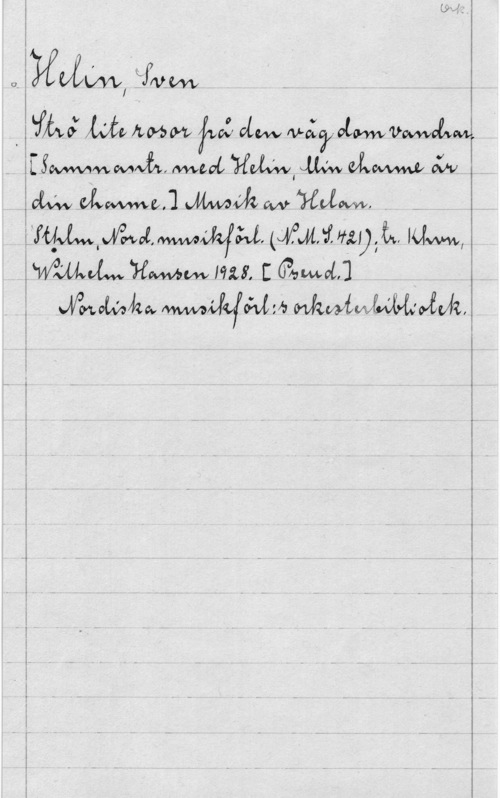 Ork.
Helin, Sven
Strö lite rosor på den väg dom vandrar.
[Sammantr. med Helin, Min charme är
din charme.] Musik av Helan.
Sthlm, Nord. musikförl. (N.M.S. 421); tr. Khvn,
Wilhelm Hansen 1928. [Pseud.]
Nordiska musikförl:s orkesterbibliotek.